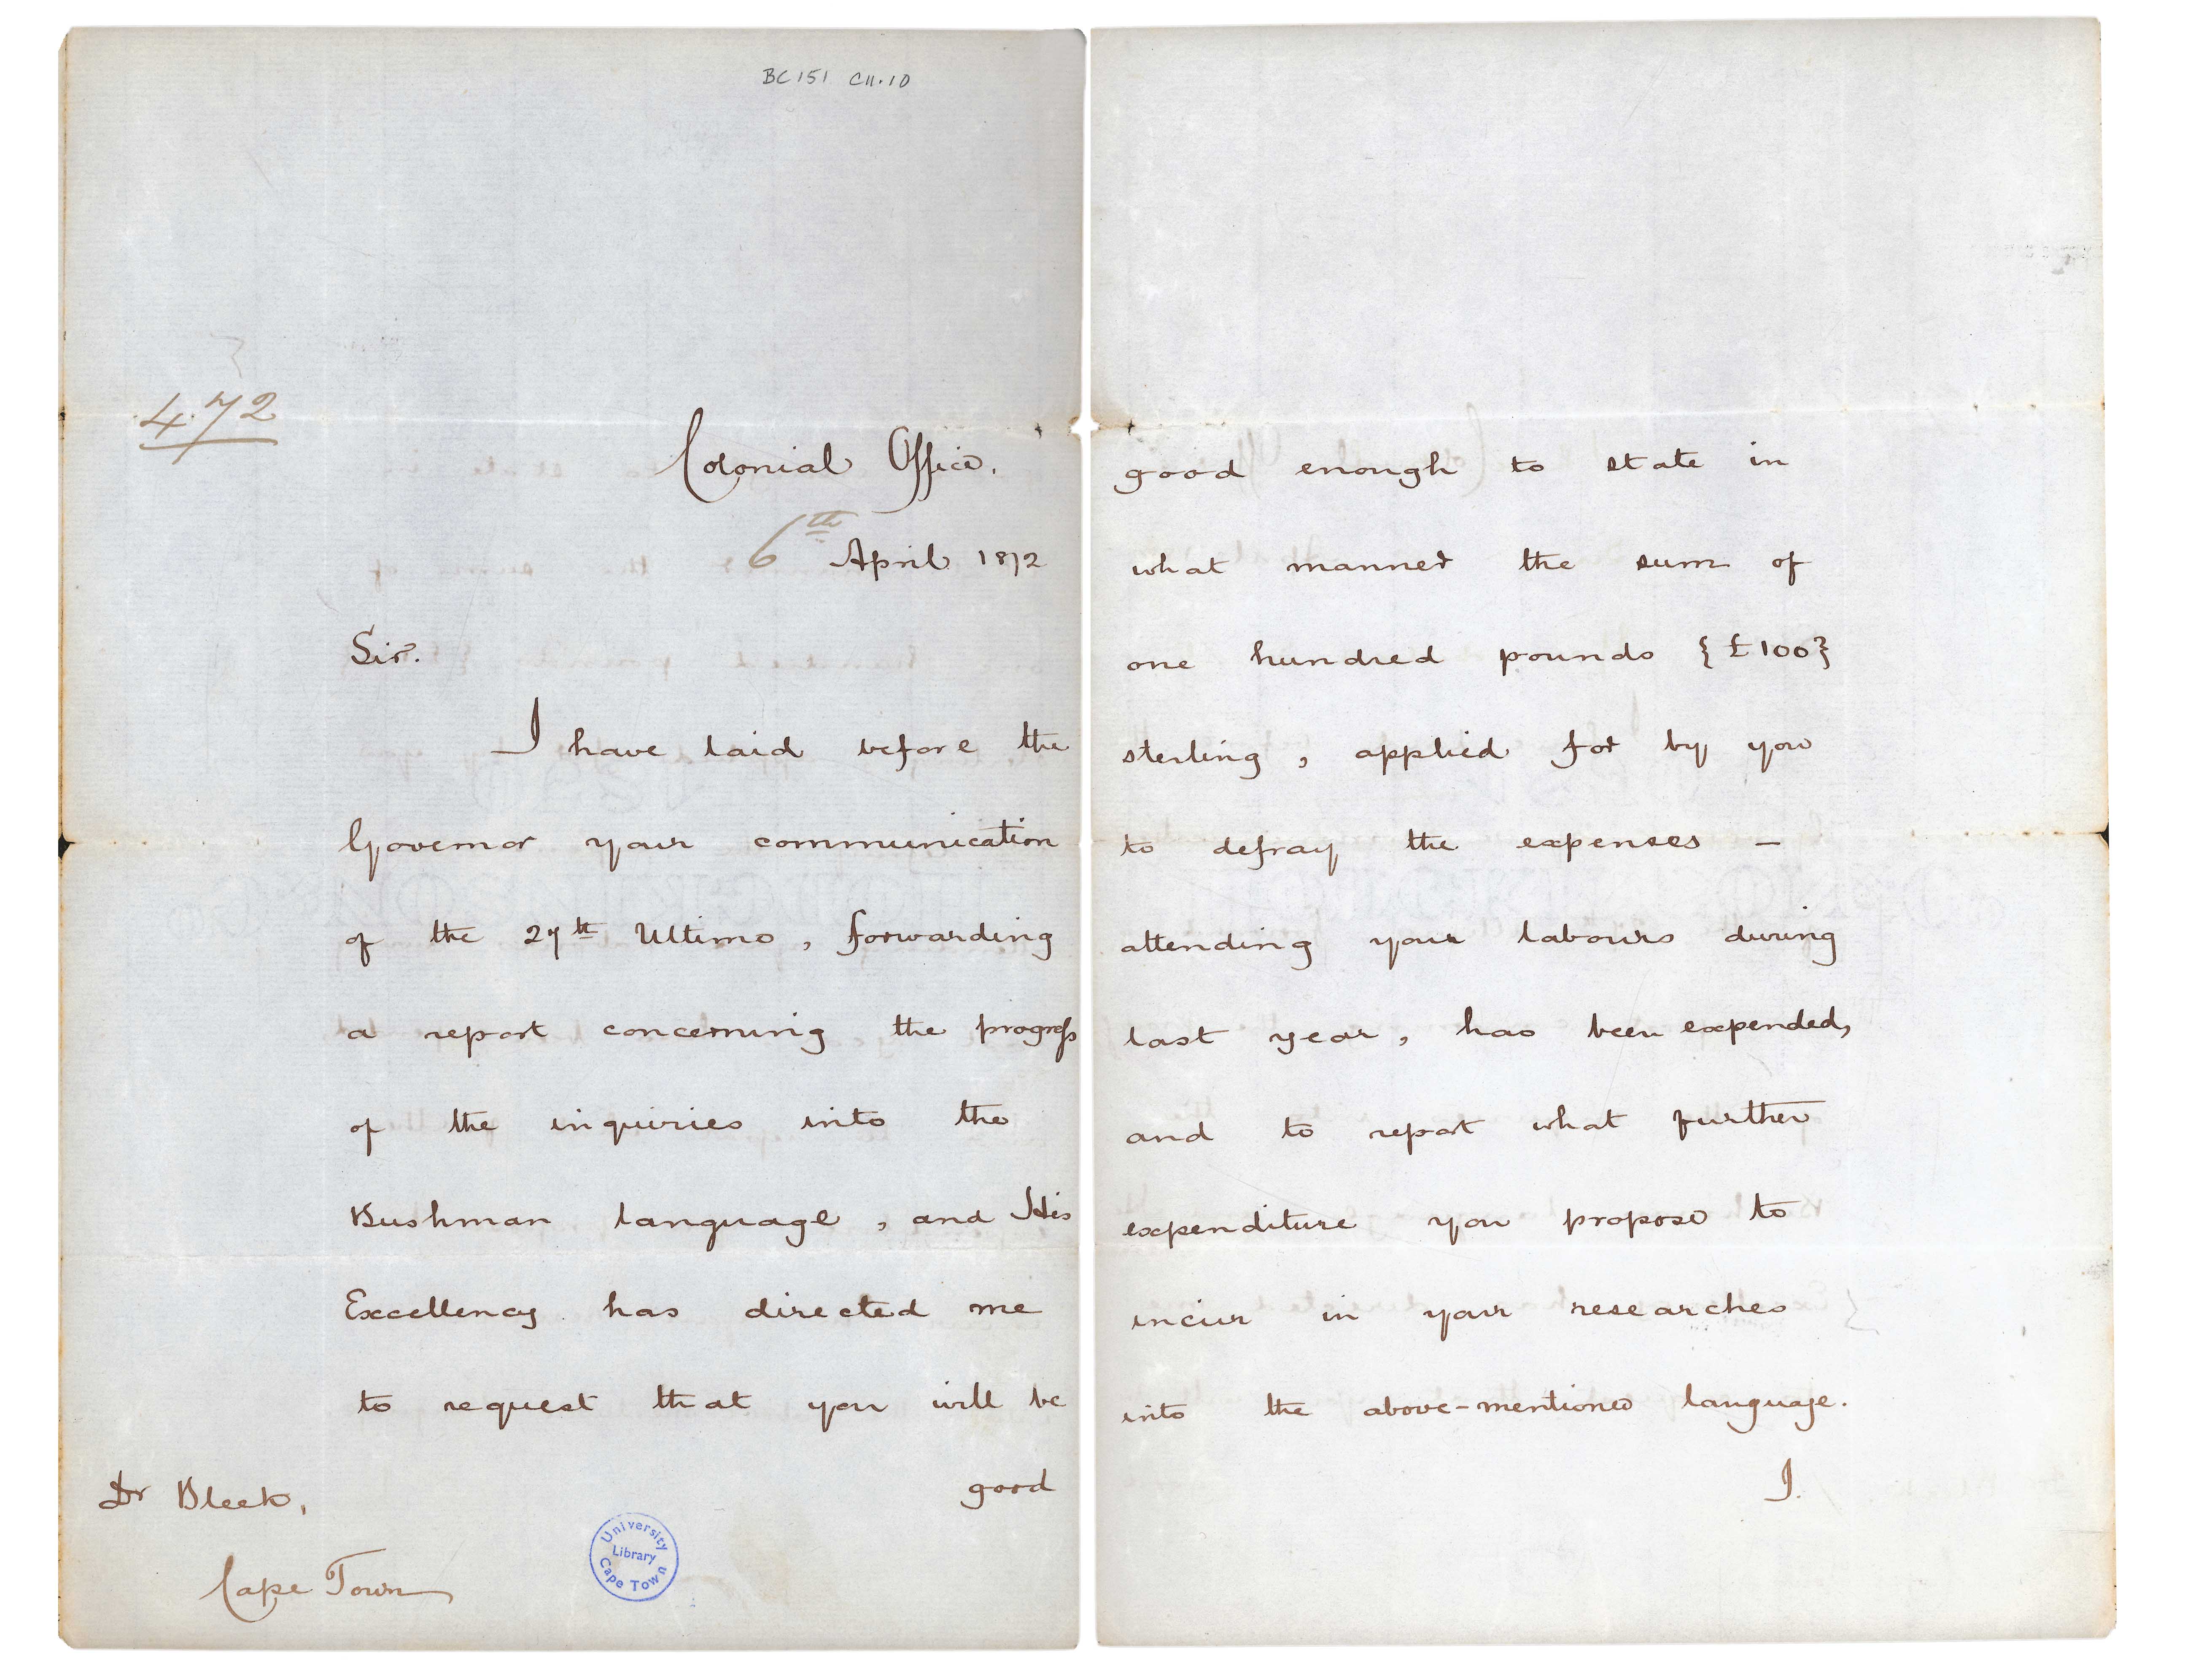 BC 151 C11.10
472
Colonial Office.
6th April 1872
Sir.
I have laid before the
Governor your communication
of the 27th Ultimo, forwarding
a report concerning the progress
of the inquiries into the
Bushman language, and His
Excellency has directed me
to request that you will be
good
Dr Bleek,
Cape Town
University Library Cape Town
good enough to state in
what manner the sum of
one hundred pounds {£100}
sterling, applied for by you
to defray the expenses –
attending your labours during
last year, has been expended,
and to report what further
expenditure you propose to
incur in your researches
into the above-mentioned language.
I.